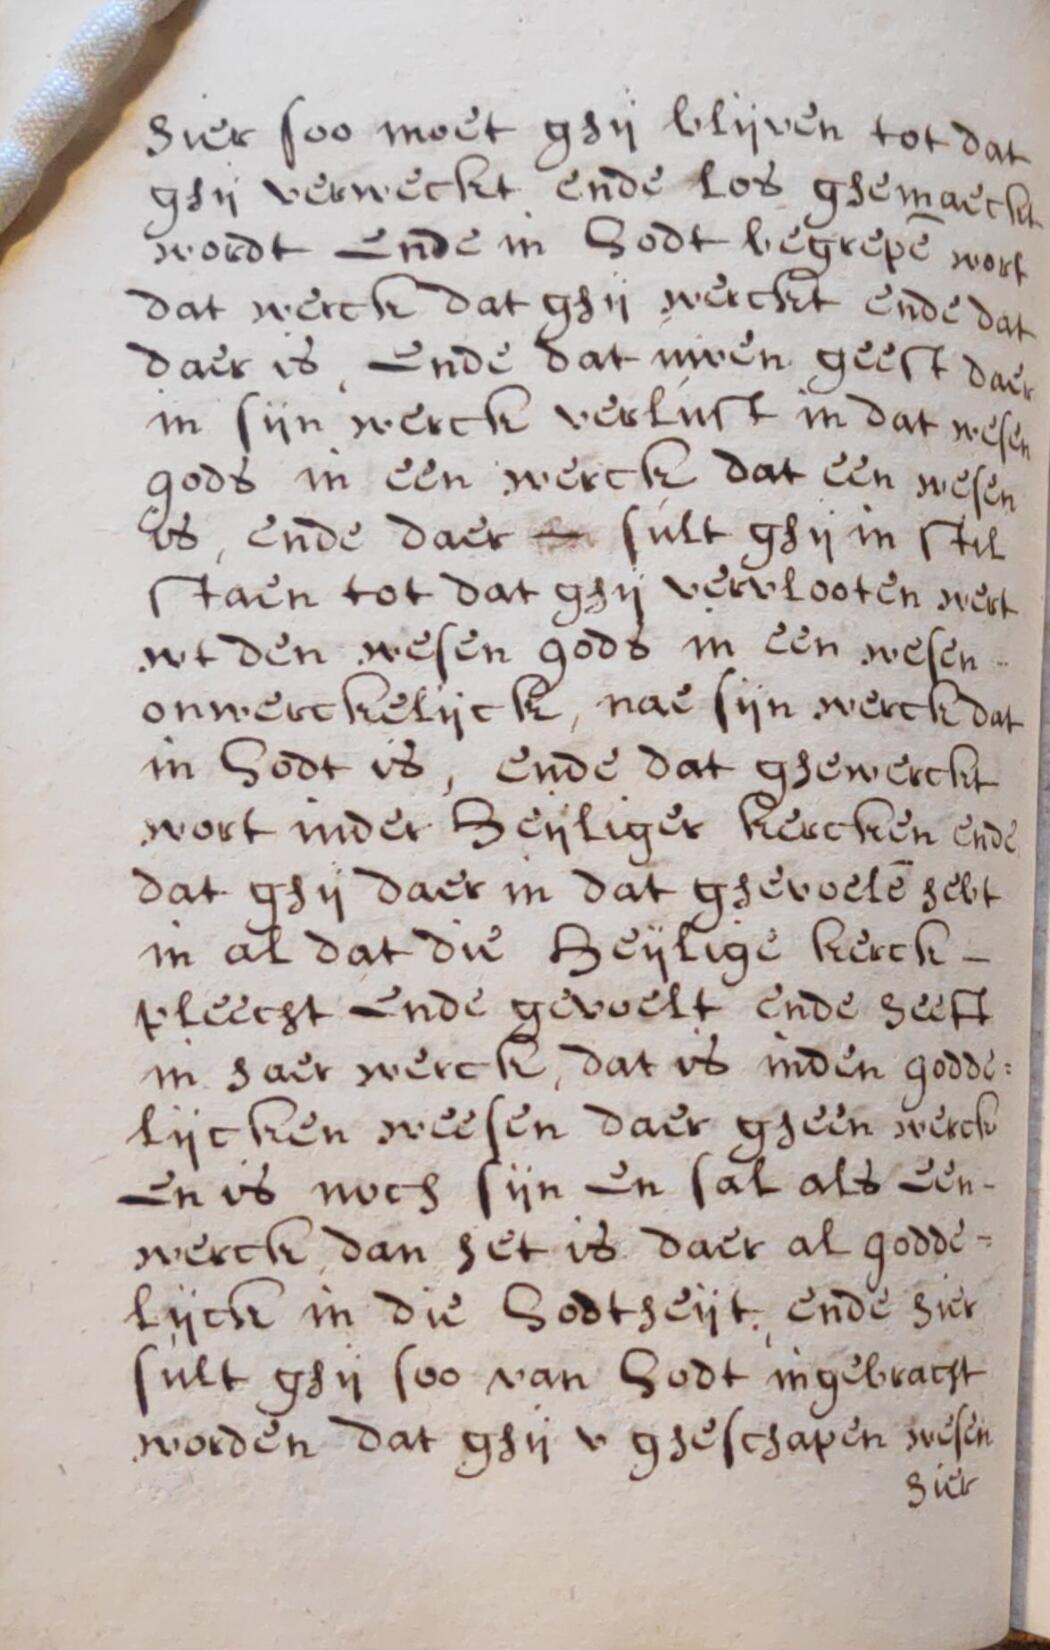 hier soo moet ghij blijven tot dat
ghij verweckt ende los ghemaeckt
wordt ende in Godt begrepē wort
dat werck dat ghij werckt ende dat
daer is, ende dat uwen geest daer
in sijn werck verlust in dat wesen
gods in een werck dat een wesen
is, ende daer sult ghij in stil
staen tot dat ghij vervlooten wert
wt den wesen gods in een wesen -
onwerckelijck, nae sijn werck dat
in Godt is, ende dat ghewerckt
wort inder Heijliger kercken ende
dat ghij daer in dat ghevoelē hebt
in al dat die Heijlige kerck -
pleecht ende gevoelt ende heeft
in haer werck, dat is inden godde=
lijcken weesen daer gheen werck
en is noch sijn en sal als een-
werck, dan het is daer al godde=
lijck in die Godtheijt, ende hier
sult ghij soo van Godt ingebracht
worden dat ghij v gheschapen wesen
hier